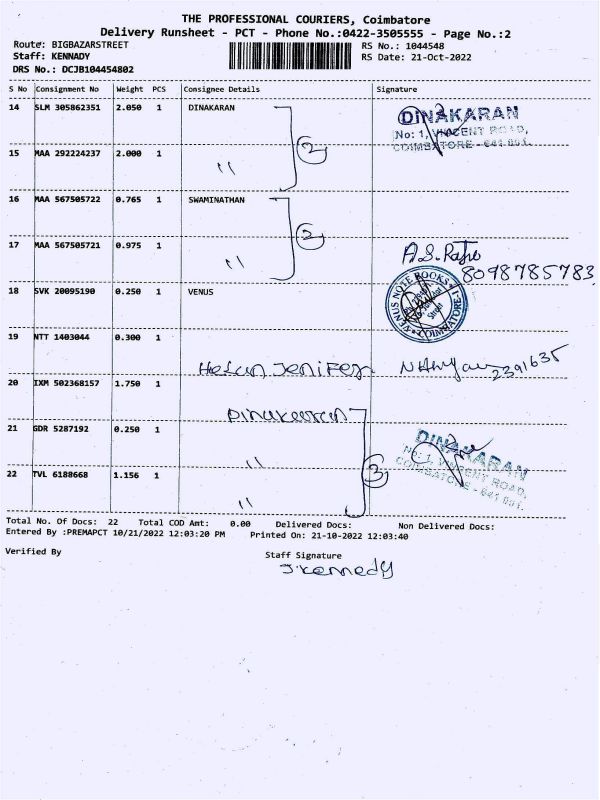 THE PROFESSIONAL COURIERS, Coimbatore
Delivery Runsheet - PCT - Phone No.:0422-3505555 - Page No.:2
Route: BIGBAZARSTREET RS No.: 1044548
Staff: KENNADY RS Date: 21-Oct-2022
DRS No.: DCJB104454802
S No Consignment No Weight PCS Consignee Details Signature
14 SLM 305862351 2.050 1 DINAKARAN
DINAKARAN
No: 1, VINCENT ROAD,
COIMBATORE - 641 001.
15 MAA 292224237 2.000 1 〃 2
16 MAA 567505722 0.765 1 SWAMINATHAN
2
17 MAA 567505721 0.975 1 〃 A.S. Raju
8098785783
18 SVK 20095190 0.250 1 VENUS
VENUS NOTE BOOKS
COIMBATORE-1
19 NTT 1403044 0.300 1
Helan Jenifer 2391635
20 IXM 502368157 1.750 1
Dinakaran
21 GDR 5287192 0.250 1 〃
3
DINAKARAN
No: 1, VINCENT ROAD,
COIMBATORE - 641 001.
22 TVL 6188668 1.156 1 〃
Total No. Of Docs: 22 Total COD Amt: 0.00 Delivered Docs: Non Delivered Docs:
Entered By :PREMAPCT 10/21/2022 12:03:20 PM Printed On: 21-10-2022 12:03:40
Verified By Staff Signature
J.Kennedy